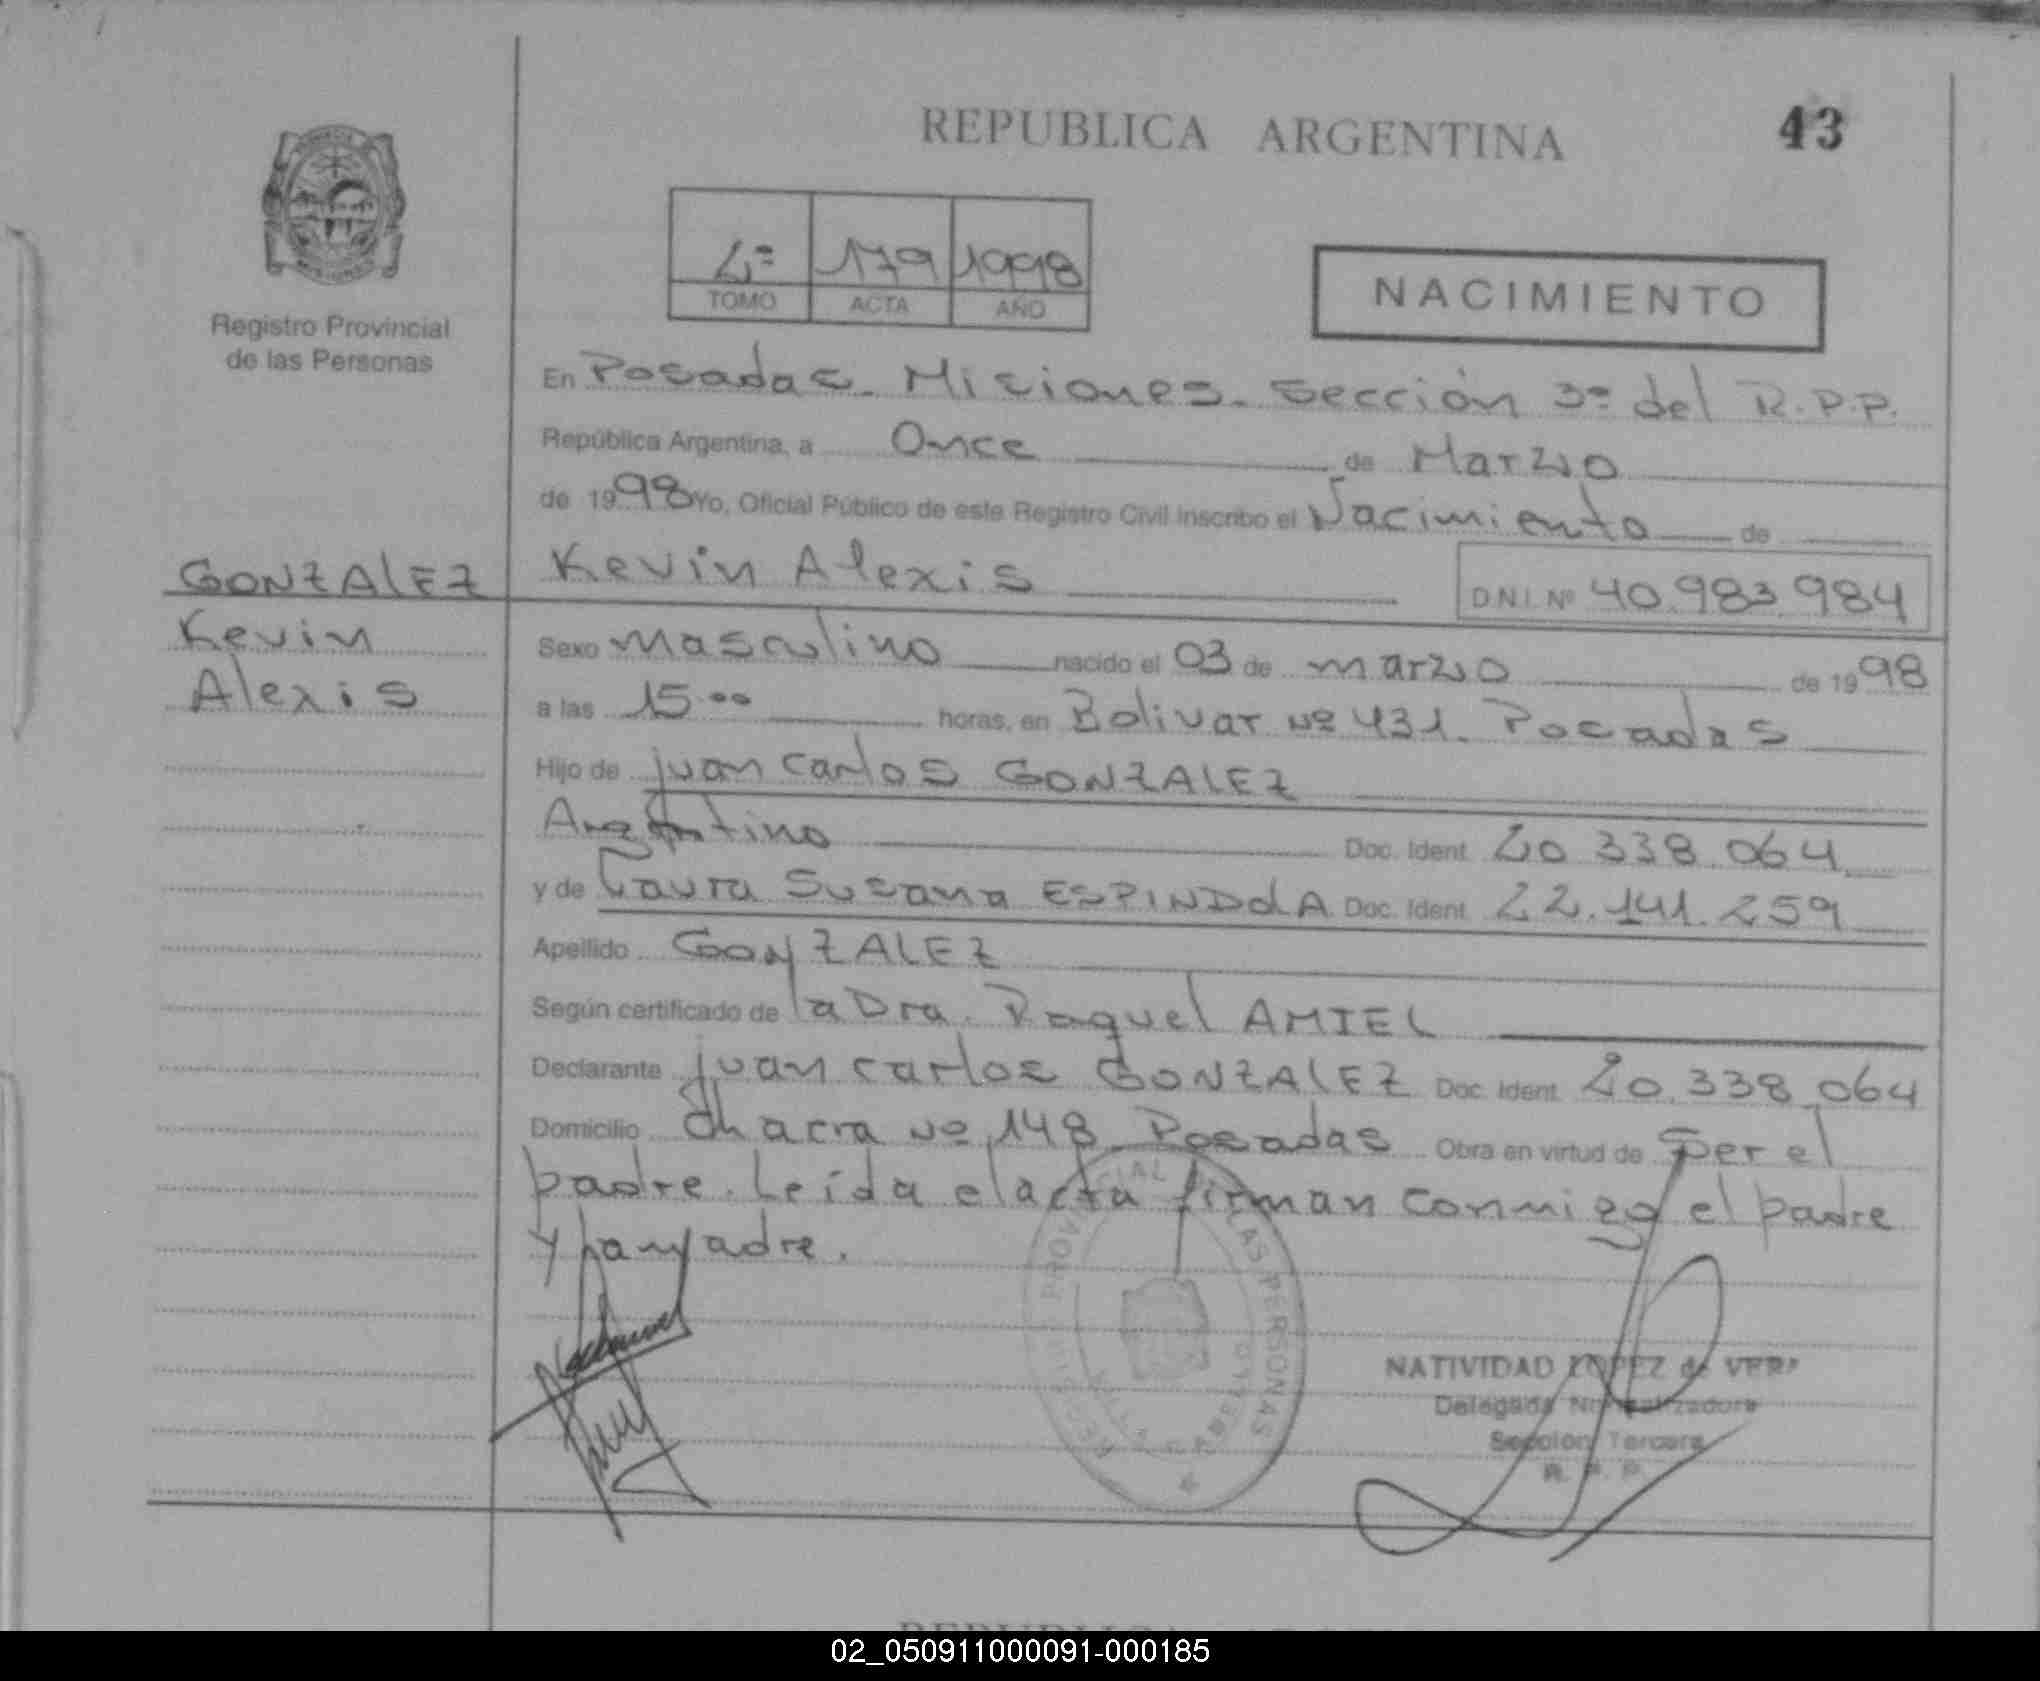 REPUBLICA ARGENTINA
43
2º 179 1998
TOMO ACTA AÑO
NACIMIENTO
Registro Provincial
de las Personas
En Posadas - Misiones - Sección 3º del R.P.P.
República Argentina, a Once de Marzo
de 1998 Yo, Oficial Público de este Registro Civil inscribo el Nacimiento de
GONZALEZ
Kevin
Alexis
Kevin Alexis D.N.I. Nº 40.983.984
Sexo masculino nacido el 03 de marzo de 1998
a las 15:00 horas, en Bolivar Nº 431. Posadas
Hijo de Juan Carlos GONZALEZ
Argentino Doc. Ident. 20.338.064
y de Laura Susana ESPINDOLA Doc. Ident. 22.141.259
Apellido GONZALEZ
Según certificado de la Dra. Raquel AMIEL
Declarante Juan Carlos GONZALEZ Doc. Ident. 20.338.064
Domicilio Chacra Nº 148 Posadas Obra en virtud de ser el
padre. Leída el acta firman conmigo el padre
y
REGISTRO PROVINCIAL LAS PERSONAS
NATIVIDAD LOPEZ de VERA
Delegada Normalizadora
Sección Tercera
R. P. P.
02_050911000091-000185